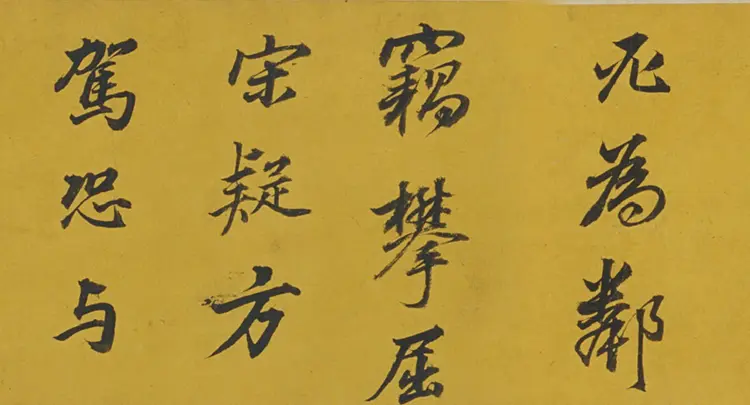 為鄰
竊攀屈
宋疑方
駕恐与